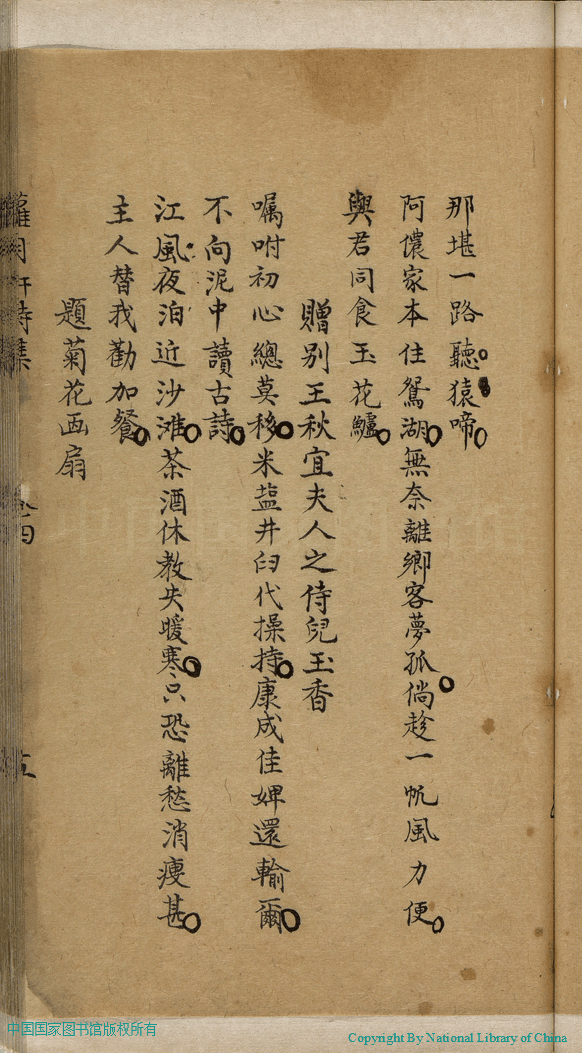 那堪一路聽猿啼
阿儂家本住鴛湖無奈離鄉客夢孤倘趁一帆風力便
與君同食玉花鱸
贈別王秋宜夫人之侍兒玉香
囑咐初心總莫移米盐井臼代操持康成佳婢還輸爾
不向泥中讀古詩
江風夜泊近沙灘茶酒休教失暖寒只恐離愁消瘦甚
主人替我勸加餐
題菊花画扇
詩集
五
中国国家图书馆版权所有
Copyright By National Library of China